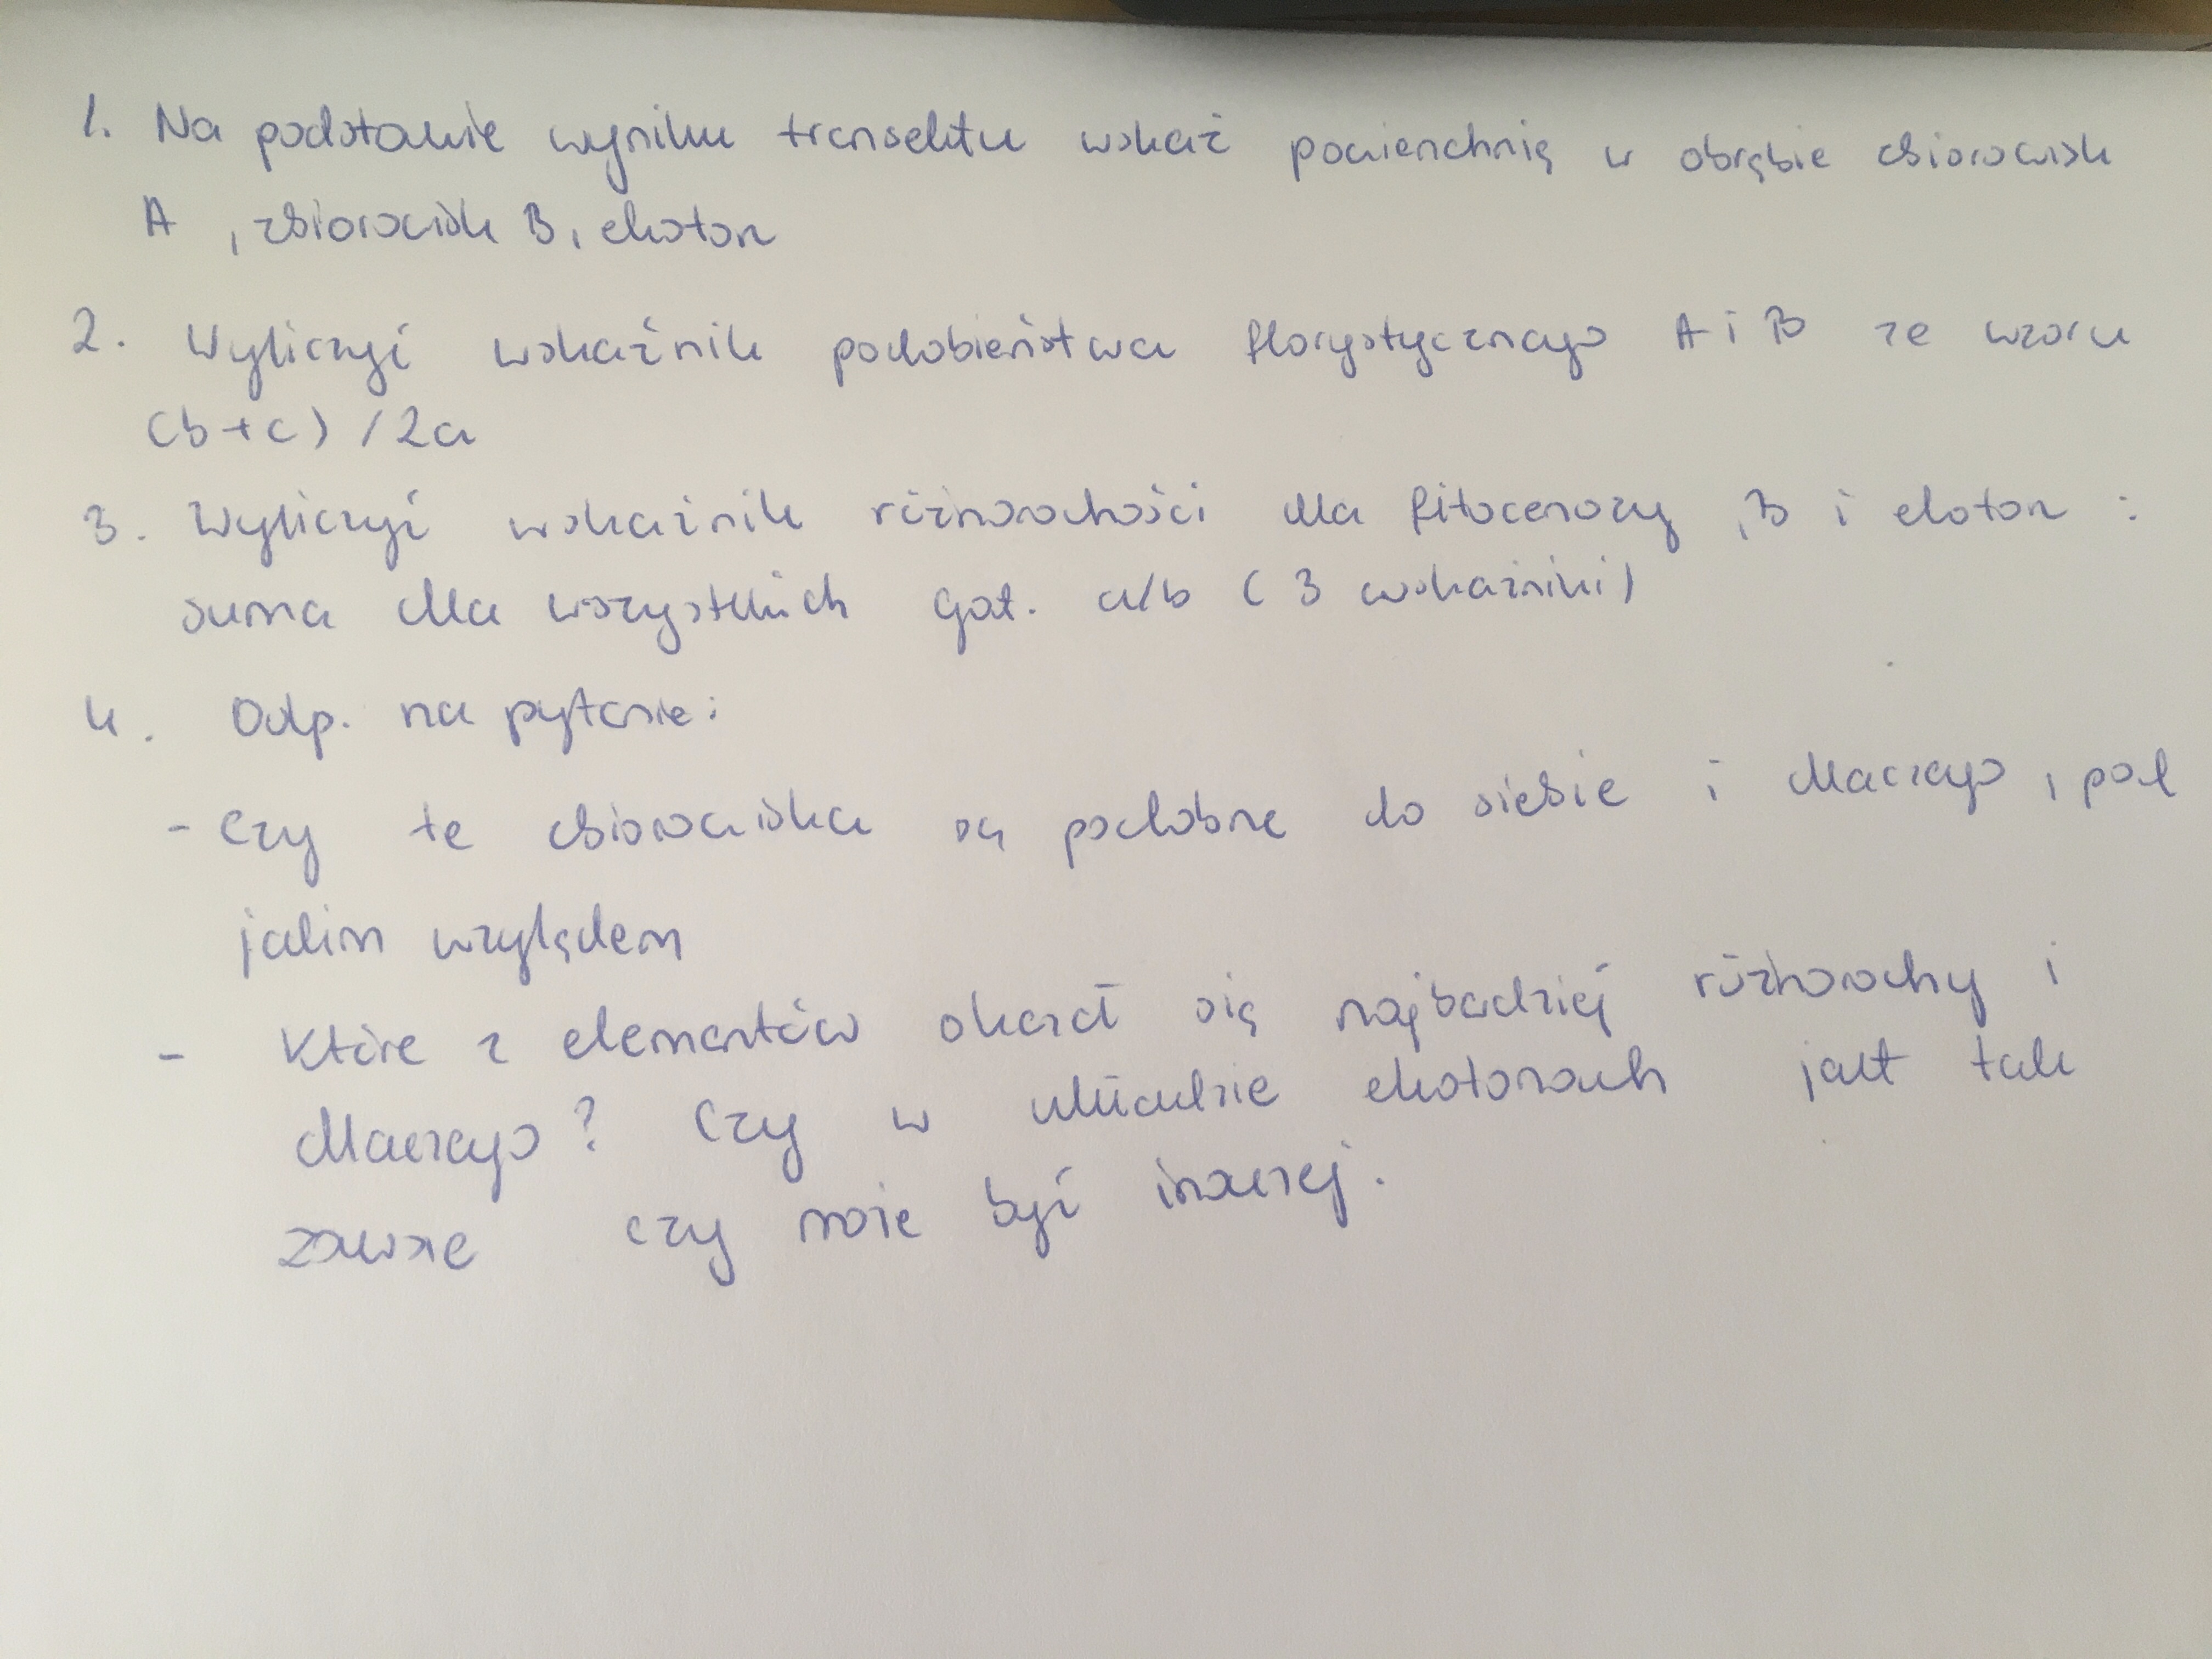 1. Na podstawie wyniku transektu wskaż powierzchnię w obrębie zbiorowisk
A , zbiorowisk B, ekoton
2. Wyliczyć wskaźnik podobieństwa florystycznego A i B ze wzoru
(b+c) /2a
3. Wyliczyć wskaźnik różnorodności dla fitocenozy ,B i ekoton :
suma dla wszystkich gat. a/b ( 3 wskaźniki)
4. Odp. na pytanie:
- Czy te zbiorowiska są podobne do siebie i dlaczego , pod
jakim względem
- Które z elementów okazał się najbadziej różnorodny i
dlaczego? Czy w układzie ekotonach jest tak
zawsze czy może być inaczej.